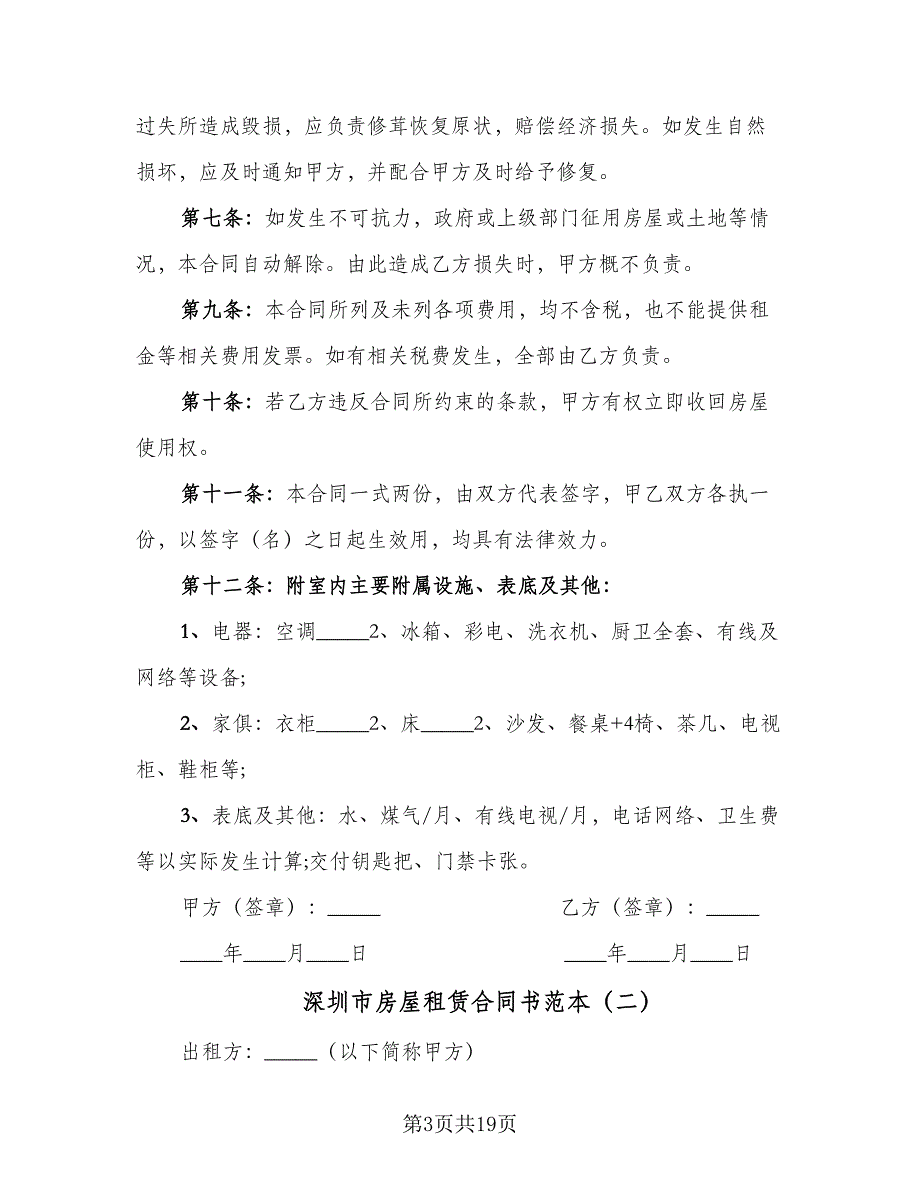 过失所造成毁损，应负责修茸恢复原状，赔偿经济损失。如发生自然
损坏，应及时通知甲方，并配合甲方及时给予修复。
第七条：如发生不可抗力，政府或上级部门征用房屋或土地等情
况，本合同自动解除。由此造成乙方损失时，甲方概不负责。
第九条：本合同所列及未列各项费用，均不含税，也不能提供租
金等相关费用发票。如有相关税费发生，全部由乙方负责。
第十条：若乙方违反合同所约束的条款，甲方有权立即收回房屋
使用权。
第十一条：本合同一式两份，由双方代表签字，甲乙双方各执一
份，以签字（名）之日起生效用，均具有法律效力。
第十二条：附室内主要附属设施、表底及其他：
1、电器：空调_____2、冰箱、彩电、洗衣机、厨卫全套、有线及
网络等设备;
2、家俱：衣柜_____2、床_____2、沙发、餐桌+4椅、茶几、电视
柜、鞋柜等;
3、表底及其他：水、煤气/月、有线电视/月，电话网络、卫生费
等以实际发生计算;交付钥匙把、门禁卡张。
甲方（签章）：_____ 乙方（签章）：_____
____年____月____日 ____年____月____日
深圳市房屋租赁合同书范本（二）
出租方：_____（以下简称甲方）
第3页共19页